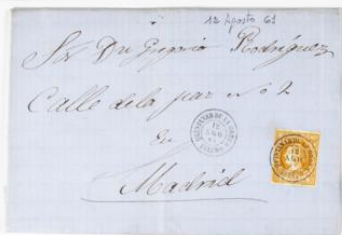 12 Agosto 61
Sor Dn Gregorio Rodriguez
Calle de la paz no 2
en
Madrid
12
AGO